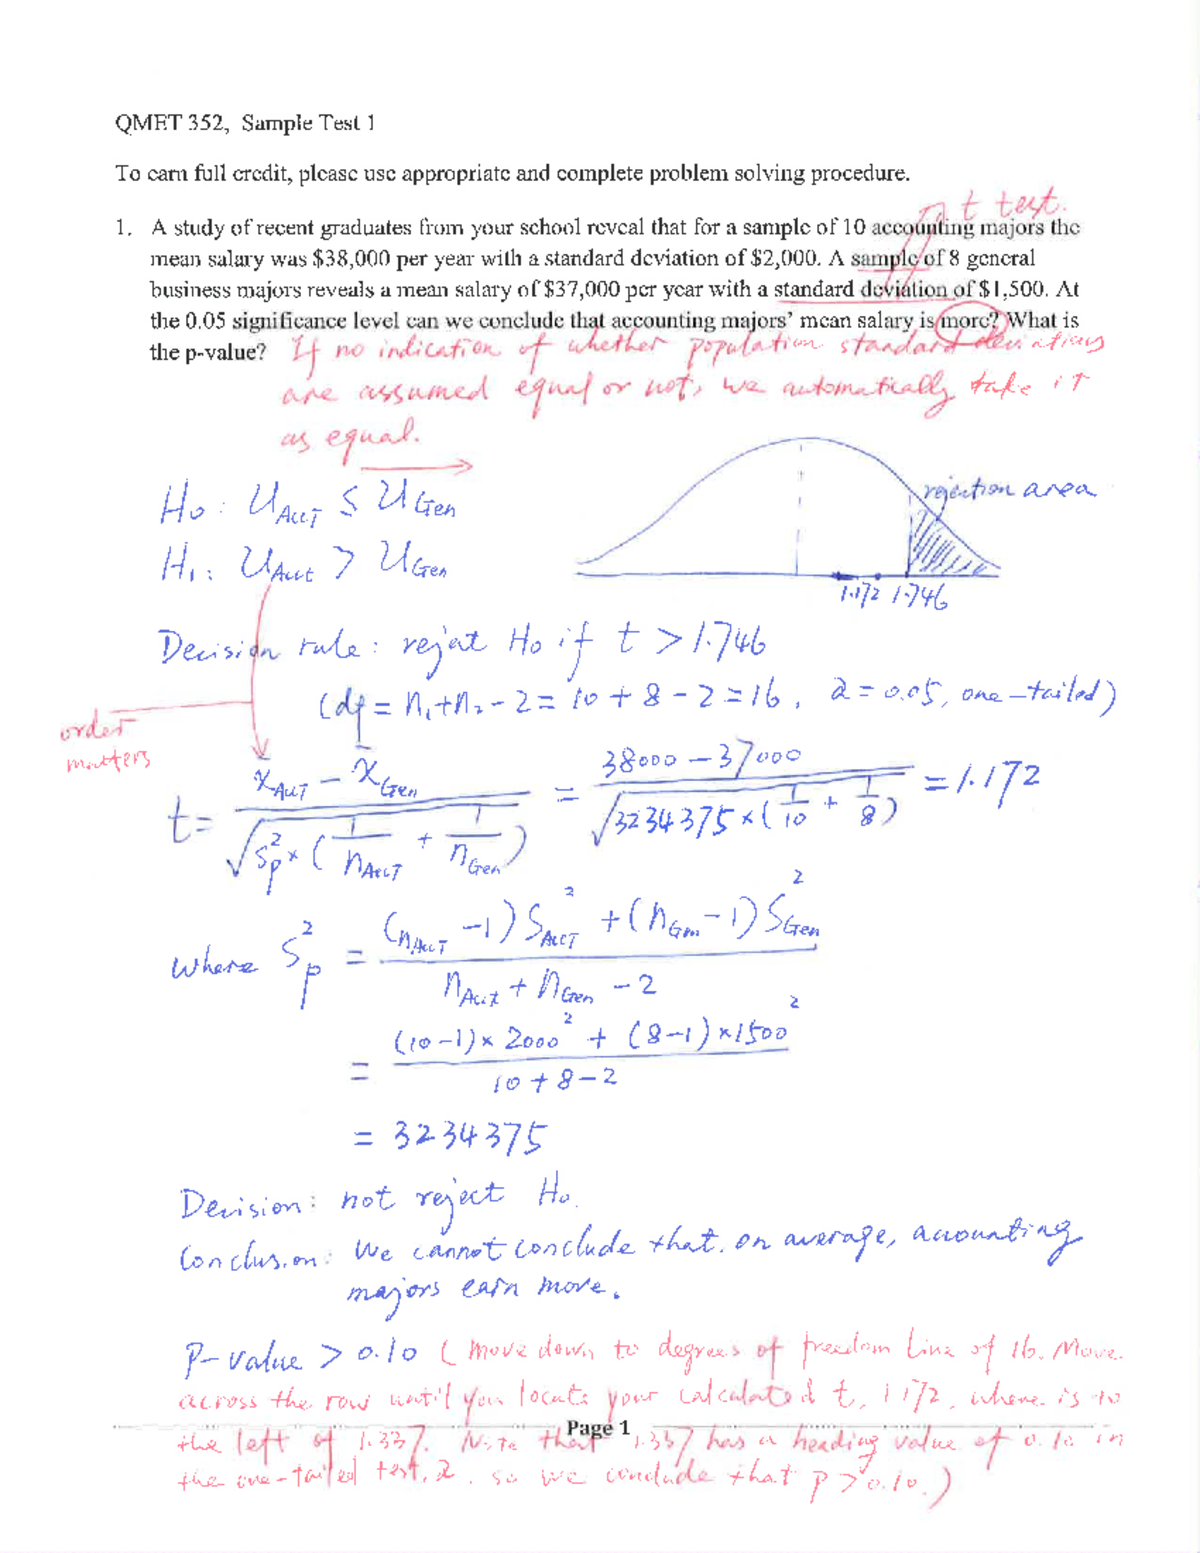 QMET 352, Sample Test 1
To earn full credit, please use appropriate and complete problem solving procedure.
t test.
1. A study of recent graduates from your school reveal that for a sample of 10 accounting majors the
mean salary was $38,000 per year with a standard deviation of $2,000. A sample of 8 general
business majors reveals a mean salary of $37,000 per year with a standard deviation of $1,500. At
the 0.05 significance level can we conclude that accounting majors' mean salary is more? What is
the p-value? If no indication of whether population standard deviations
are assumed equal or not, we automatically take it
as equal.
H₀: U_ACCT ≤ U_Gen
rejection area
H₁: U_Acct > U_Gen
1.172 1.746
Decision rule: reject H₀ if t > 1.746
(df = n₁+n₂-2 = 10+8-2 = 16, α = 0.05, one-tailed)
order
matters
t = (x̄_ACCT - x̄_Gen) / √(S_p² × (1/n_ACCT + 1/n_Gen)) = (38000 - 37000) / √(3234375 × (1/10 + 1/8)) = 1.172
where S_p² = ((n_ACCT - 1) S_ACCT² + (n_Gen - 1) S_Gen²) / (n_Acct + n_Gen - 2)
= ((10-1) × 2000² + (8-1) × 1500²) / (10+8-2)
= 3234375
Decision: not reject H₀.
Conclusion: We cannot conclude that, on average, accounting
majors earn more.
P-value > 0.10 (Move down to degrees of freedom line of 16. Move
across the row until you locate your calculated t, 1.172, where is to
Page 1
the left of 1.337. Note that 1.337 has a heading value of 0.10 in
the one-tailed test, α. so we conclude that p > 0.10.)